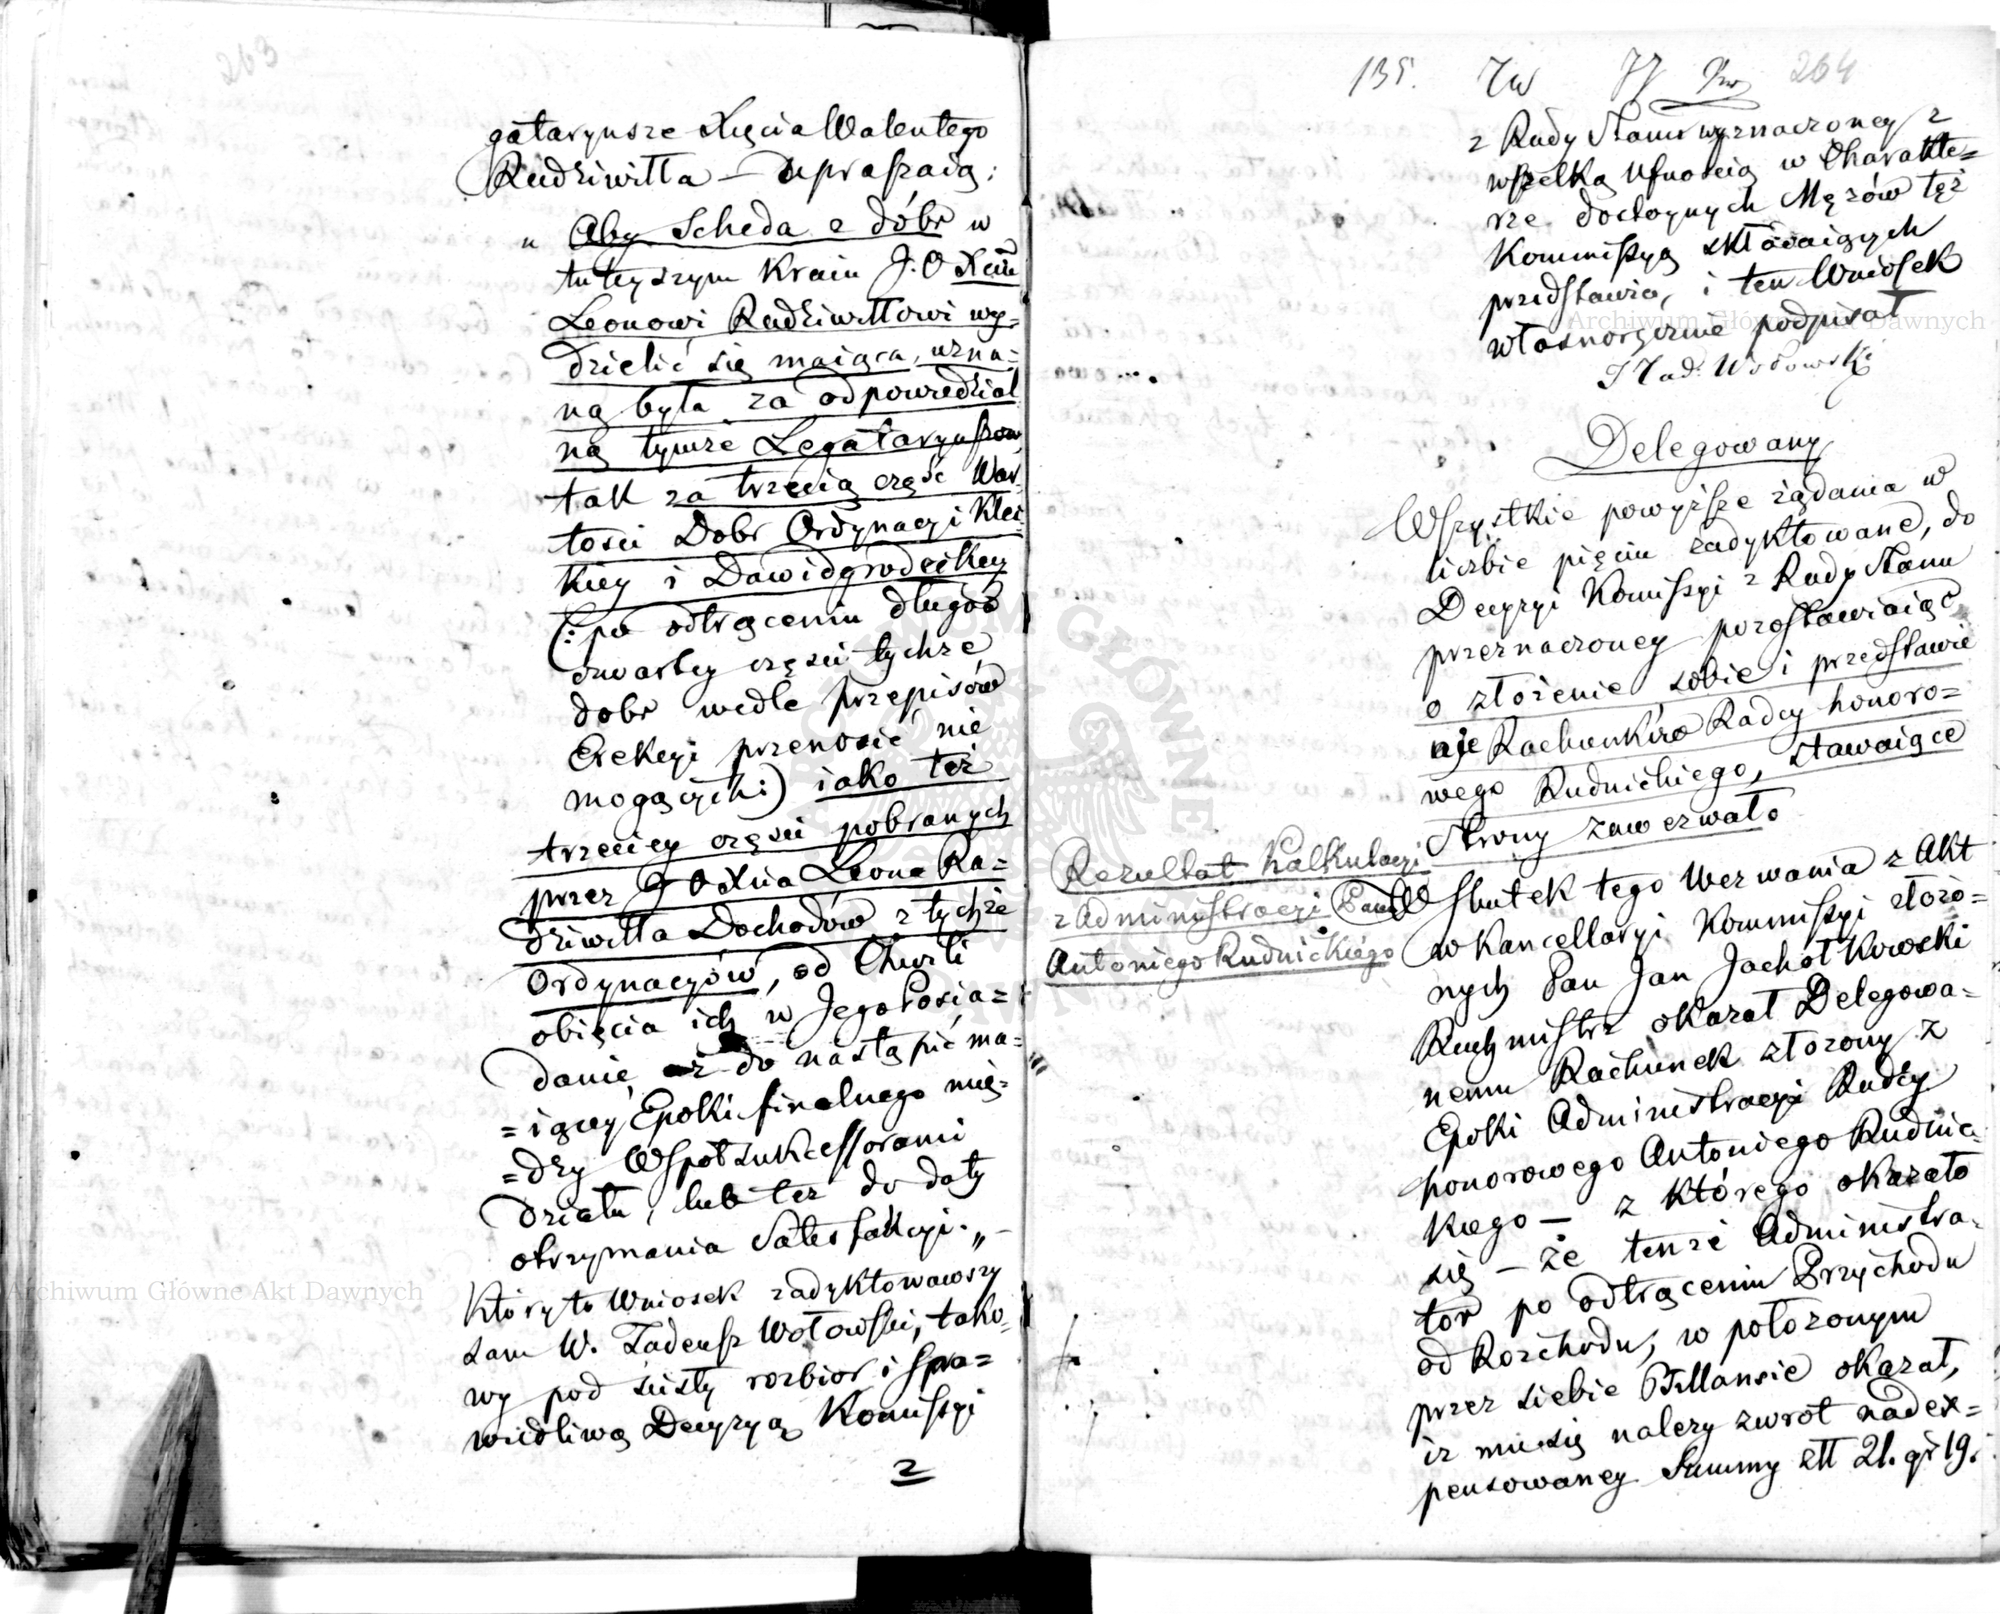 263
gataryusze Xięcia Walentego
Radziwiłła — upraszaią:
„ Aby Scheda z dóbr w
tuteyszym Kraiu J. O. Xciu
Leonowi Radziwiłłowi wy=
dzielić się maiąca, uzna=
ną była za odpowiedzial
ną tymże Legataryuszom,
tak za trzecią część War=
tości Dobr Ordynacyi Klec=
kiey i Dawidgrodeckiey
(: po odtrąceniu długów
czwartey części tychże
dobr wedle przepisów
Erekcyi przenosić nie
mogących:) iako też
trzeciey części pobranych
przez J O Xcia Leona Ra=
dziwiłła Dochodów z tychże
Ordynacyów, od Chwili
obięcia ich w Jego Posia=
danie, aż do nastąpić ma=
=iącey Epoki finalnego mię=
=dzy Współsukcessorami
działu, lub też do daty
otrzymania Satesfakcyi. „ —
Który to Wniosek zadyktowawszy
sam W. Tadeusz Wołowski, tako=
wy pod ścisły rozbior i spra=
wiedliwą Decyzyą Kommissyi
z
135. 77 264
z Rady Stanu wyznaczoney z
wszelką ufnością w Charakte=
rze dostoynych Mężów też
Kommissyą składaiących
przedstawia, i ten Wniosek
własnoręcznie podpisał
Archiwum Główne Akt Dawnych
J Tad. Wołowski
Delegowany
Wszystkie powyższe żądania w
liczbie pięciu zadyktowane, do
Decyzyi Komissyi z Rady Stanu
przeznaczoney pozostawiaiąc,
o złożenie sobie i przedstawie
nie Rachunków Radcy honoro=
wego Rudnickiego, stawaiące
Strony zawezwał.
Rezultat Kalkulacyi
z Administracyi Pana
Antoniego Rudnickiego
W skutek tego Wezwania z Akt
w Kancellaryi Kommissyi złożo=
nych Pan Jan Jachołkowski
Rachmistrz okazał Delegowa=
nemu Rachunek złożony z
Epoki Administracyi Radcy
honorowego Antoniego Rudnic=
kiego — z którego okazało
się — że tenże Administra=
tor po odtrąceniu Przychodu
od Rozchodu, w położonym
przez siebie Billansie okazał,
iż mu się należy zwrot nadex=
pensowaney Summy Złl 21. gr 19.
Archiwum Główne Akt Dawnych
ARCHIWUM GŁÓWNE AKT DAWNYCH